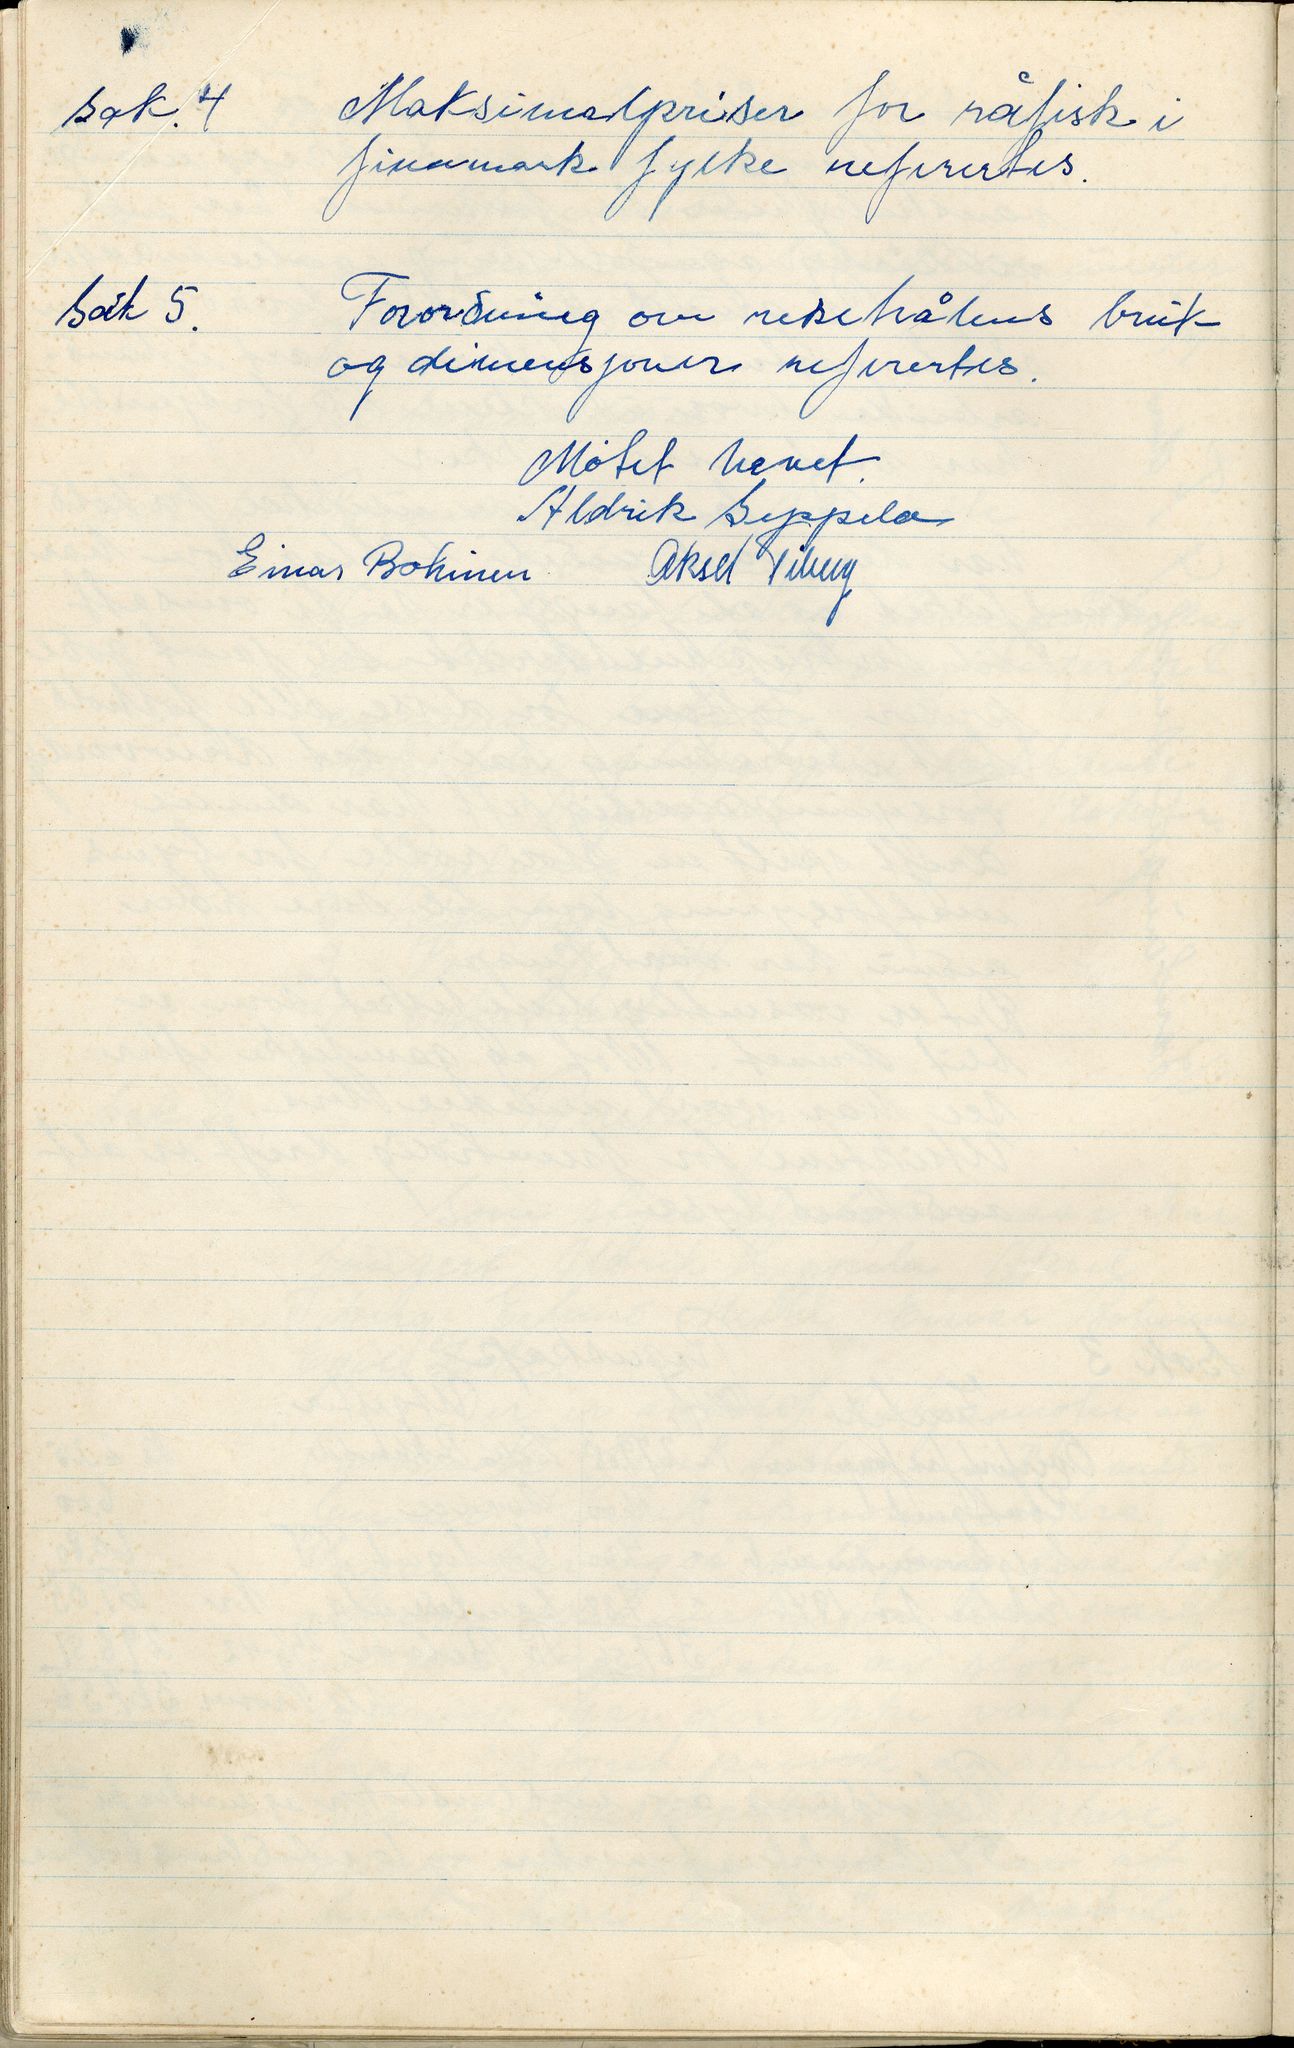 Sak. 4 Maksimalpriser for råfisk i
finnmark fylke refirertes.
Sak 5. Forordning om reketrålens bruk
og dimensjoner refirertes.
Møtet hevet.
Aldrik Seppela
Einar Bokinen Aksel Viberg